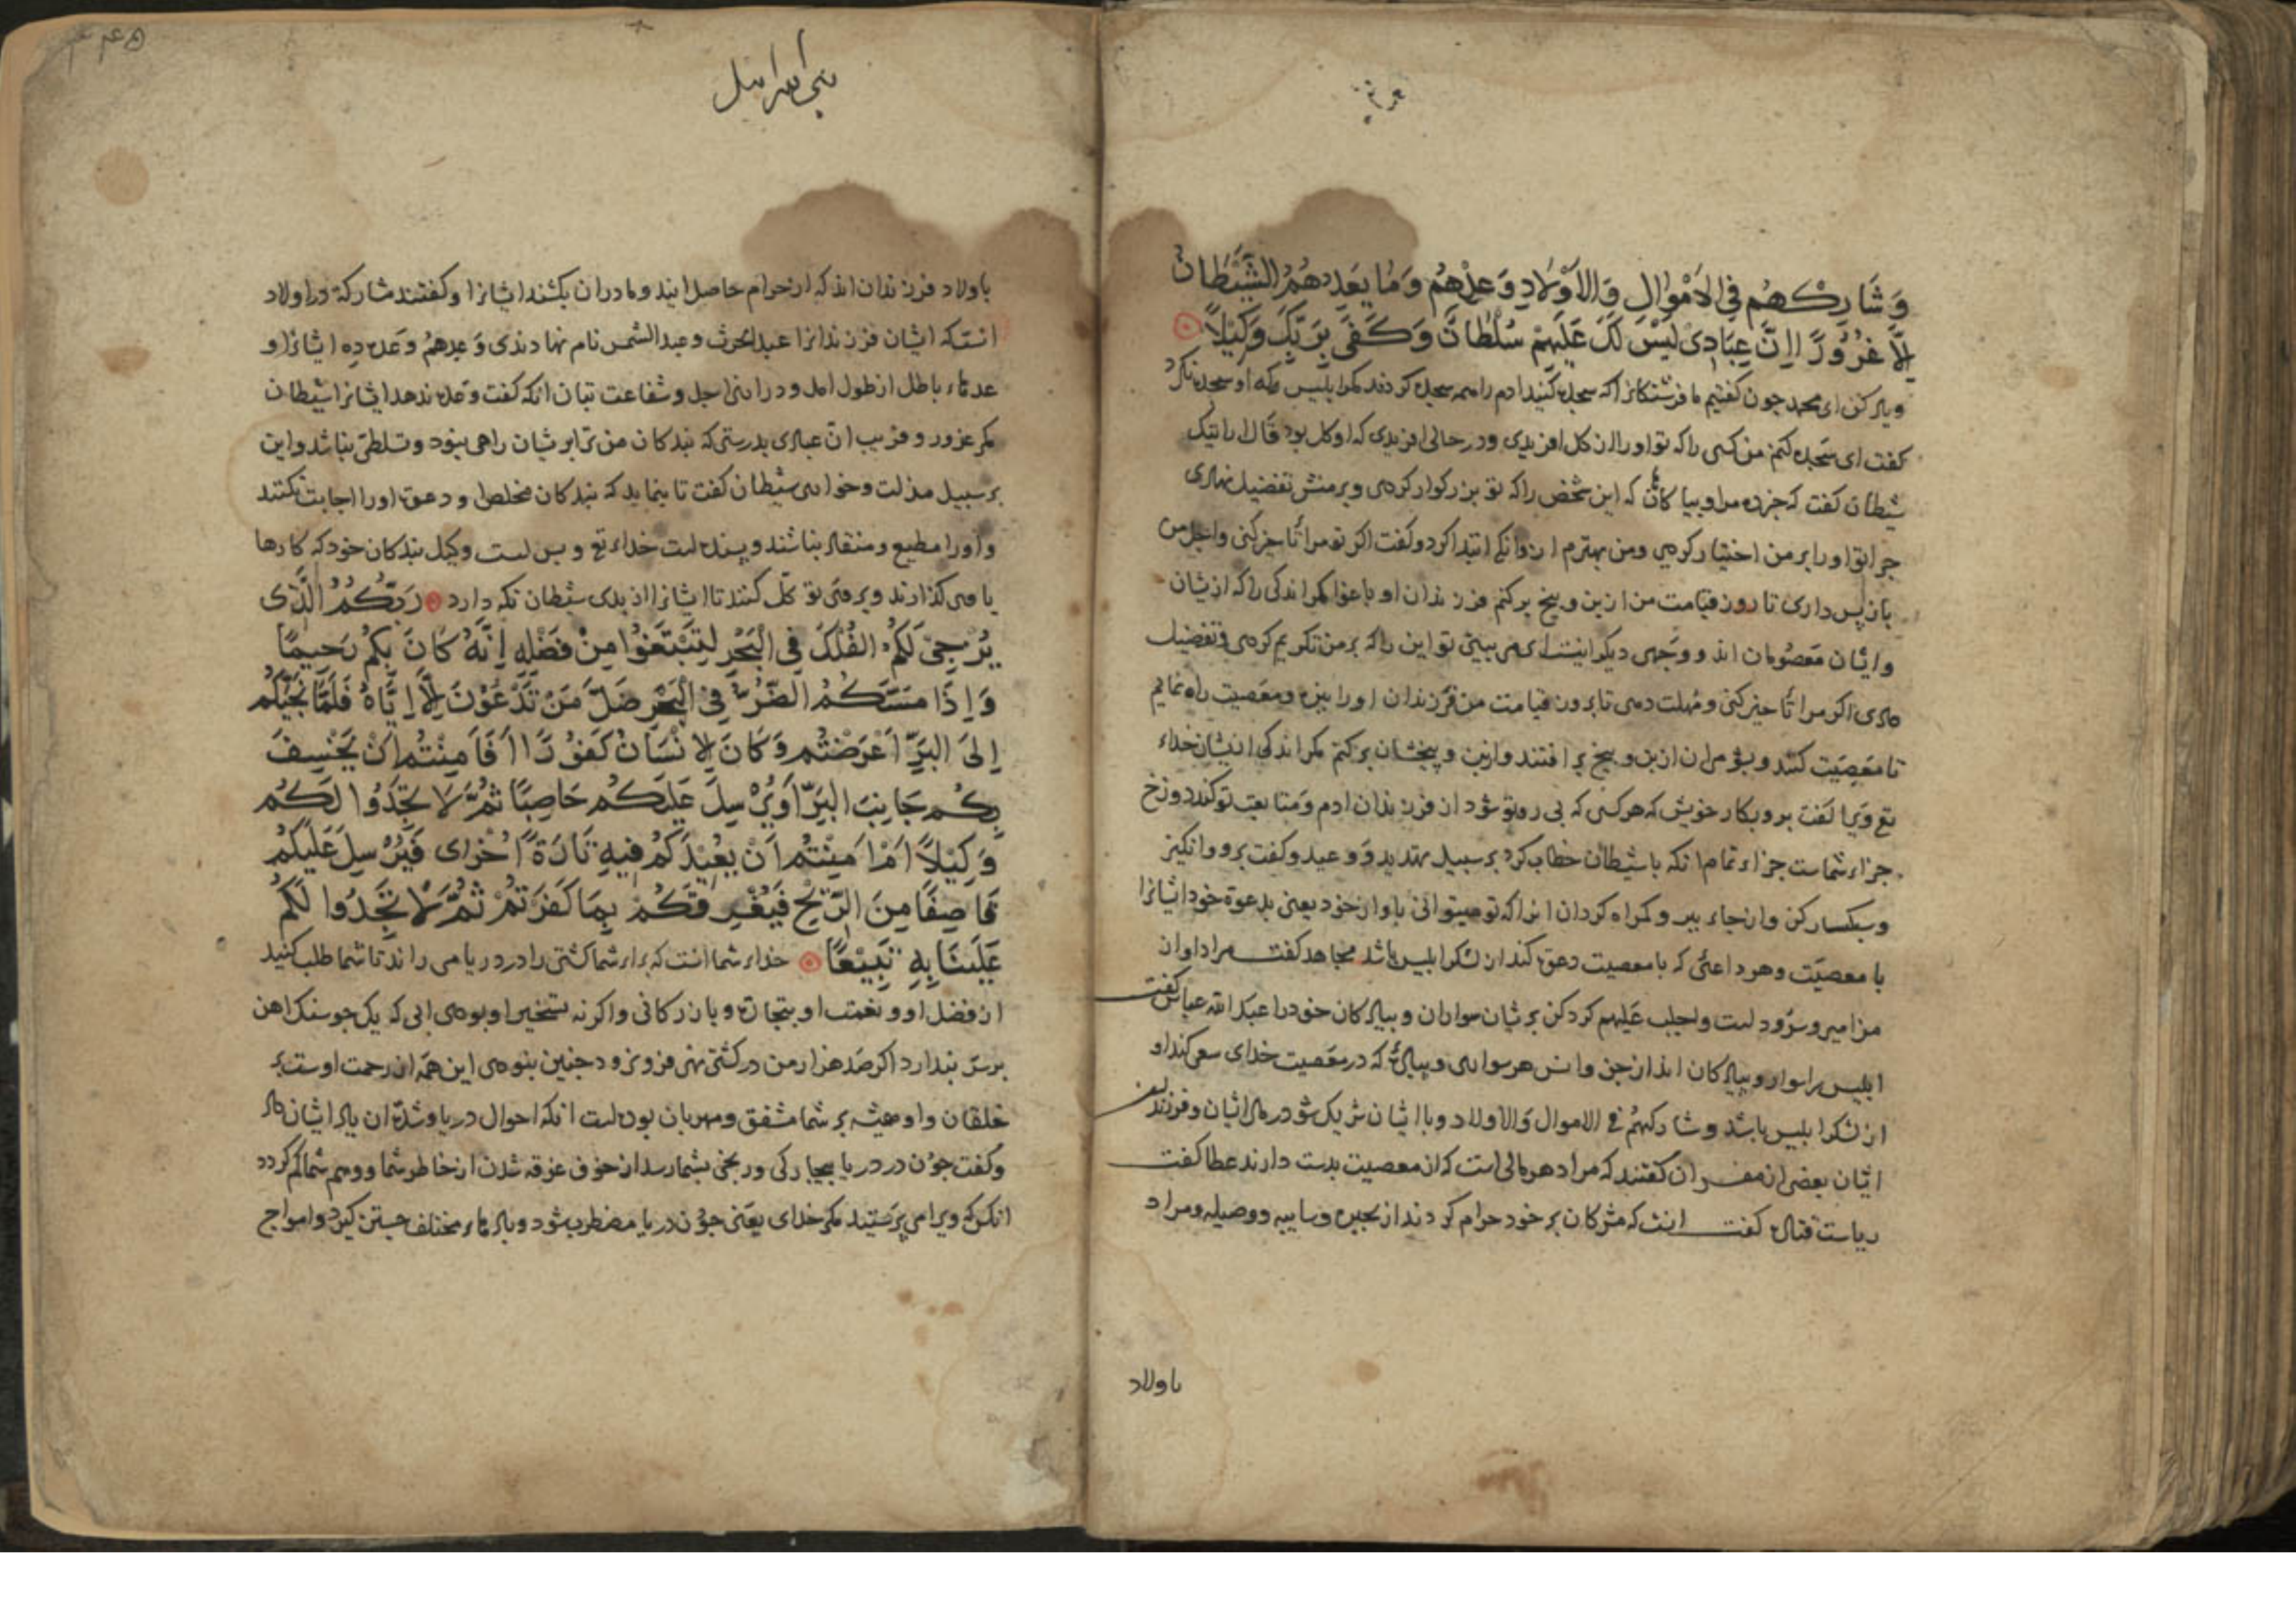 وَشَارِكْهُم فِی الاَمْوٰالِ وَالاَوْلَادِ وَعِدْهُم وَمٰا يَعِدُهُمُ الشَّيْطَانُ
اِلّاَ غُرُوُرًا اِنَّ عِبَادِی لَيْسَ لَكَ عَلَيْهِمْ سُلْطَانٌ وَكَفَى بِرَبِّكَ وَكِيْلاً
وياد كن اى محمد جون كفتيم ما فرشتكانرا كه سجده كنيد ادم را همه سجده كردند مكر ابليس كه او سجده نكرد
كفت اى سَجده كنم من كسى را كه تو او را از كل افريدى ودر حالى افريدى كه او كل بود قَال ارايتك
شيطان كفت كه خبر ده مرا وبيا كاهان كه اين شخص را كه تو بزركوار كردى وبر منش تفضيل نهادى
جرا تو او را بر من اختيار كردى ومن بهترم ازو انكه ابتدا كرد وكفت اكر تو مرا تأخير كنى واجل من
باز پس دارى تا روز قيامت من از بن وبيخ بركنم فرزندان او باغوا مكر اندكى را كه ازيشان
وايشان مَعصُومان اند ووَجهى ديكر اينست اى مى بينى تو اين را كه بر من تكريم كردى وتفضيل
دادى اكر مرا تأخير كنى ومُهلت دهى تا بروز قيامت من فرزندان او را بيزه ومعَصيت راه نمايم
تا معَصِيَت كنند وبشومى ان از بن وبيخ بر افتند وازبن وبيخشان بركنم مكر اندكى ازيشان خداء
تع ويرا كفت برو بكار خويش كه هر كسى كه پى رو تو شود از فرزندان ادم ومتابعت تو كند دوزخ
جزاء شماست جزاء تمام انكه با شيطان خطاب كرد بر سبيل تهديد وَوعيد وكفت برو وانكيز
وسبكسار كن وازجاء ببر وكمراه كردان انرا كه تو ميتوانى باواز خود يعنى بدعوة خود ايشانرا
با معصيّت وهر داعئى كه با معصيت دعوة كند از لشكر ابليس باشد مجاهد كفت مراد اواز
مزامير وسرُود است واجلب عَليهم كرد كن بريشان سواران وپيادكان خود را عبد الله عباس كفت
ابليس را سوار وپيادكان اند از جن وانس هر سوارى وپيادئ كه در معَصيت خداى سعى كند او
از لشكر ابليس باشد وشاركهُم فى الاموال وَالاولاد وبا ايشان شريك شو در مال ايشان وفرزندان
ايشان بعضى از مفسران كفتند كه مراد هر مالى است كه از معصيت بدست دارند عطا كفت
رياست قتاده كفت انست كه مشركان بر خود حرام كردند از بحيره وسايبه ووصيله ومراد
باولاد
بنى اسرائيل
باولاد فرزندان اند كه از حرام حاصل ايند ومادران بكشند ايشانرا وكفتند مشاركة در اولاد
انستكه ايشان فرزندانرا عبد الحرث وعبد الشمس نام نهادندى وَعِدهُم وَعده ده ايشانرا و
عدهاء باطل از طول امل ودرازنى اجل وشفاعت بتان انكه كفت وَعده ندهد ايشانرا شيطان
مكر غرور وفريب انّ عبادى بدرستى كه بندكان من ترا بريشان راهى نبود وتسلطى نباشد واين
بر سبيل مذلت وخوارى شيطان كفت تا بنمايد كه بندكان مخلص او دعوة او را اجابت نكنند
واورا مطيع ومنقاد نباشند وپسنده است خداء تع وبس است وكيل بندكان خود كه كارها
با وى كذارند وبر وى توكّل كنند تا ايشانرا از بدى شيطان نكه دارد رَبُّكُمُ الَّذِی
يُزْجِیْ لَكُمُ الفُلْكَ فِی الْبَحْرِ لِتَبْتَغُوْا مِنْ فَضْلِهِ اِنَّهُ كَانَ بِكُم رَحيمًا
وَاِذَا مَسَّكُمُ الضُّرُّ فِیْ الْبَحْرِ ضَلَّ مَنْ تَدْعُوْنَ اِلّاَ اِيَّاهُ فَلَمَّا نَجّٰيكُم
اِلَى البَرِّ اَعْرَضْتُم وَكَانَ الاِنْسَانُ كَفُوْرًا اَفَاَمِنْتُم اَنْ يَخْسِفَ
بِكُم جَانِبَ البَرِّ اَوْ يُرْسِلَ عَلَيكُم حَاصِبًا ثُمَّ لَا تَجِدُوا لَكُم
وَكِيْلاً اَمْ اَمِنْتُم اَنْ يُعِيْدَكُم فِيهِ تَارَةً اُخْرٰى فَيُرْسِلَ عَلَيْكُم
قَاصِفًا مِنَ الرِّيْحِ فَيُغْرِقَكُم بِمَا كَفَرْتُم ثُمَّ لَا تَجِدُوا لَكُم
عَلَيْنَا بِهِ تَبِيْعًا خداء شما انست كه براء شما كشتى را در دريا مى راند تا شما طلب كنيد
از فضل او ونعمت او بتجارة وبازركانى واكر نه تسخير او بودى ابى كه يك جو سنك اهن
بر سر ندارد اكر صَد هزار من در كشتى نهى فرو نرود جنين نبودى اين همَه از رحمت اوست بر
خلقان واو هميشه بر شما مشفق ومهربان بوده است انكه احوال دريا وشدّة ان ياد ايشان داد
وكفت جوُن در دريا بيجاركى ورنجى بشما رسد از خوف غرقه شدن از خاطر شما ووهم شما كم كردد
انكس كه ويرا مى پرَستيد مكر خداى يعَنى جوُن دريا مضطرب شود وبادهاء مختلف جستن كيرد وامواج